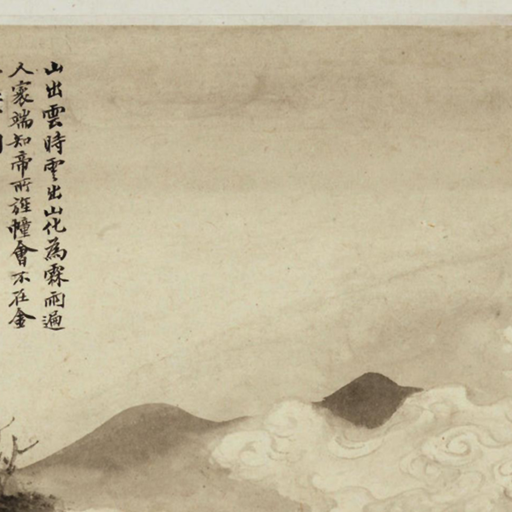 山出雲時雲出山化為霖雨遍
人寰端知帝所旌幢會不在金